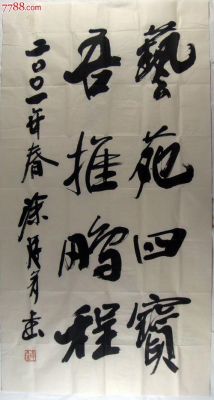 7788.com
藝苑四寶
吾推鹏程
二〇〇一年春 徐